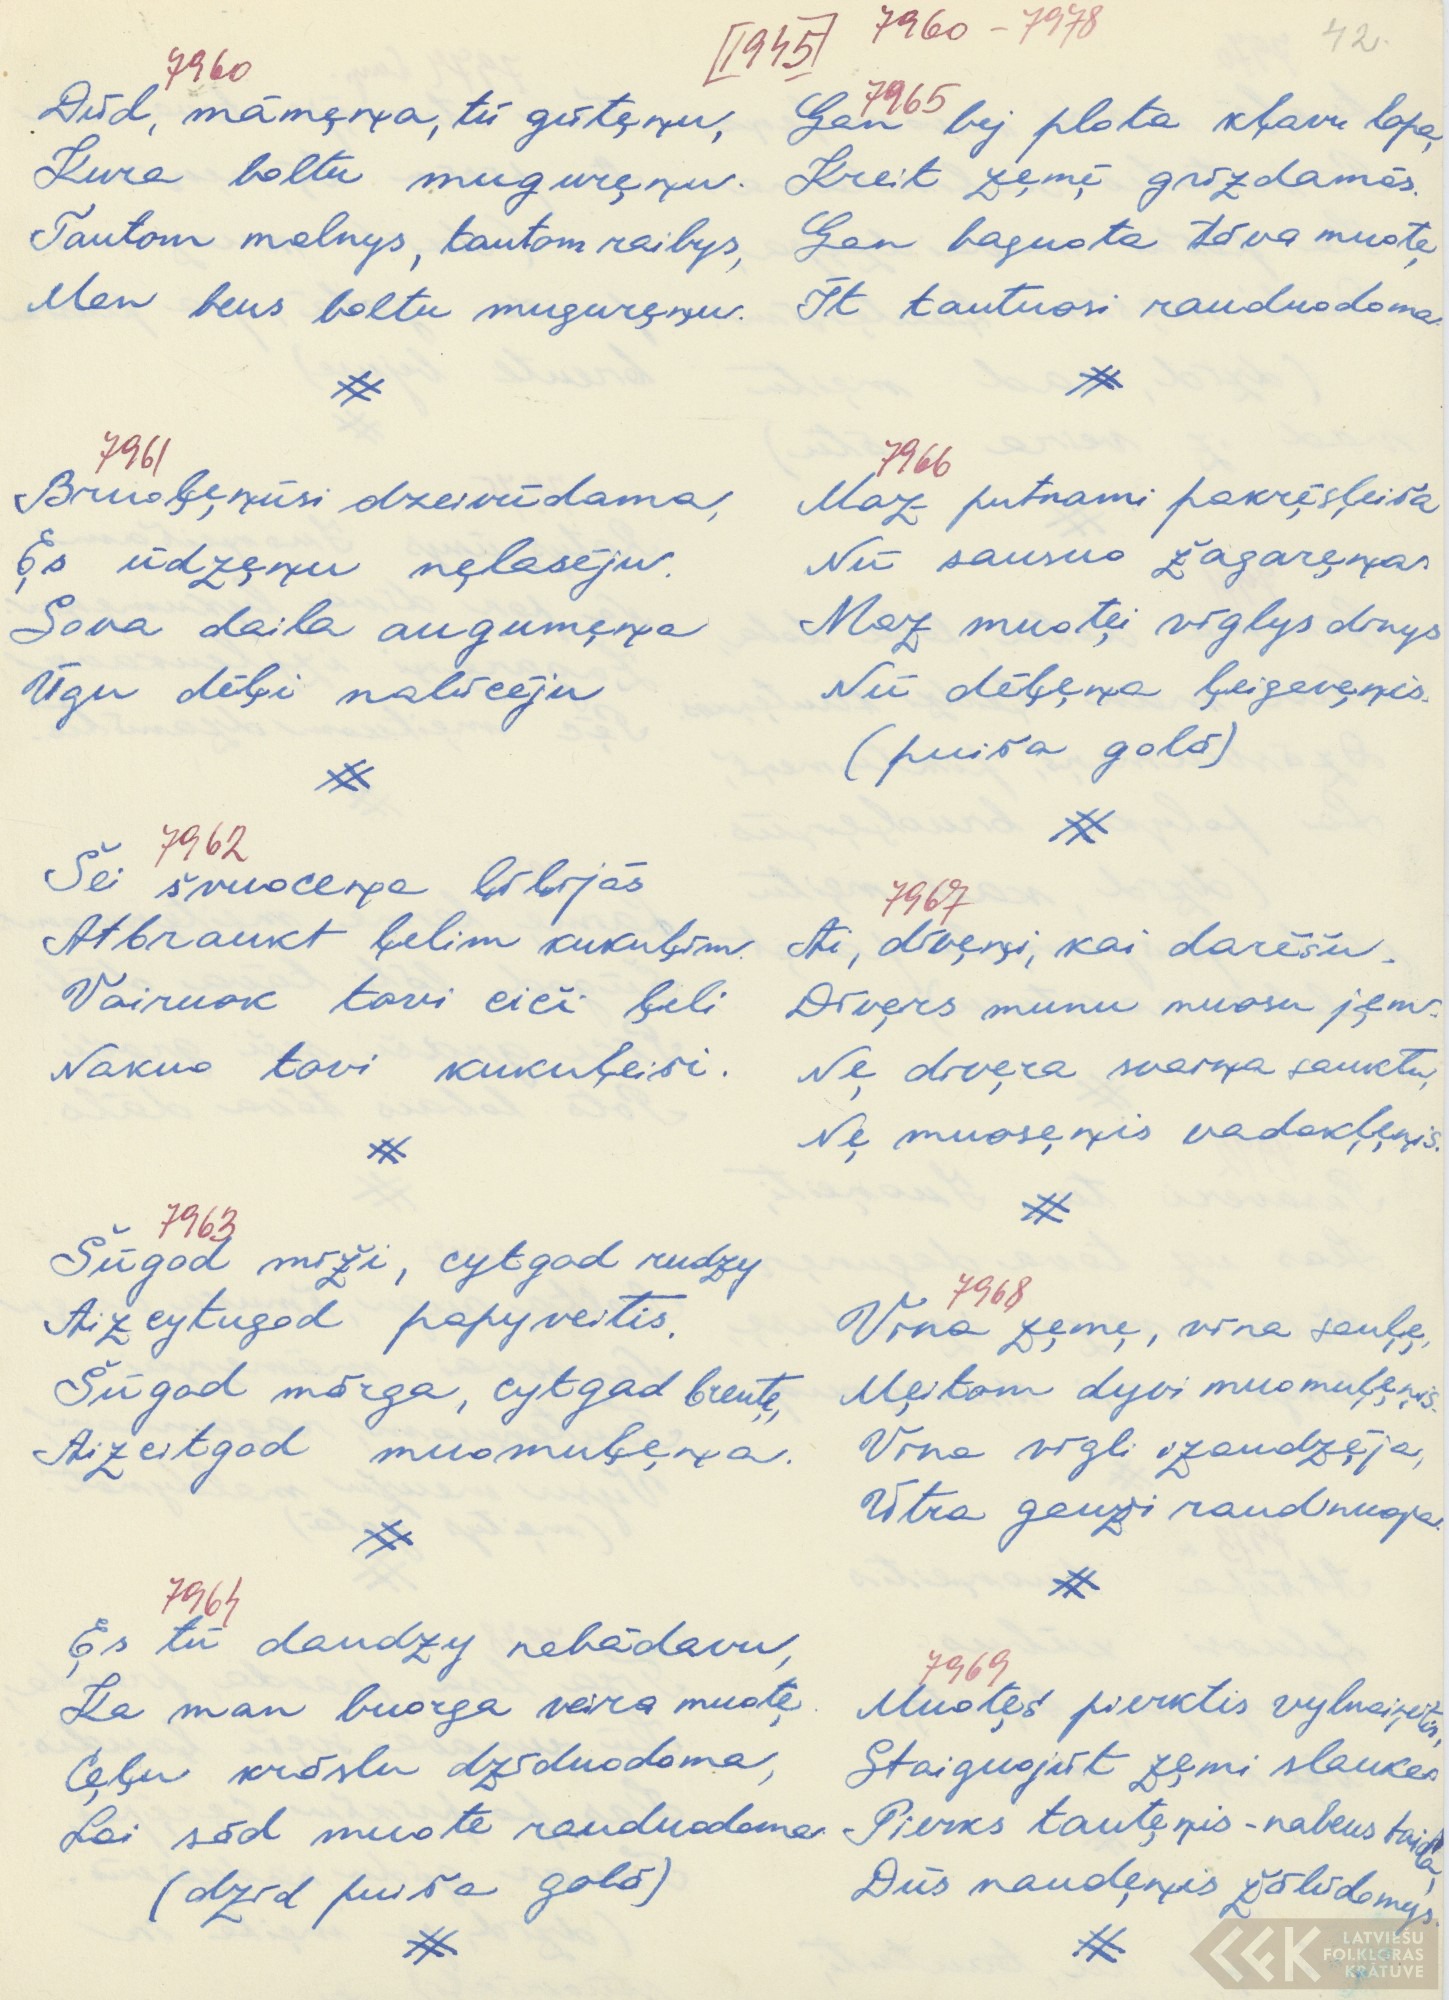 [1945] 7960 - 7978
42.
7960
Dūd, māmęņa, tū gūtęņu,
Kura boltu muguręņu.
Tautom malnys, tautom raibys,
Man beus boltu muguręņu.
7961
Bruoļęņūsi dzeivūdama,
Ęs ūdzęņu nęlasēju.
Sova daila augumęņa
Ūgu dēļi nalūcēju
7962
Šei švuoceņa ļīļījās
Atbraukt ļelim kukuļim.
Vairuok tovi cici ļeli
Nakuo tovi kukuļeiši.
7963
Šūgod mīži, cytgod rudzy
Aizcytugod papyveitis.
Šūgod mārga, cytgad breutę,
Aizcitgod muomuļęņa.
7964
Ęs tū daudzy nebādavu,
Ka man buorga veira muotę.
Cęļu krāslu dzīduodama,
Lai sād muote rauduodama.
(dzīd puiša golā)
7965
Gan bej plota kļavu lopa,
Kreit zęmę grīzdamās.
Gan baguota tāva muotę,
Īt tautuosi rauduodama.
7966
Maz putnami pakręsļeiša
Nū sausuo žagaręņa.
Maz muotęi vīglys dīnys
Nū dēļęņa ļeigaveņis.
(puiša golā)
7967
Ai, dīvęņi, kai darēšu.
Dīvęrs munu muosu jęm.
Nę divęra svaiņa sauktu,
Nę muosęņis vadakļęņis.
7968
Vīna zęmę, vīna sauļę,
Męitom dyvi muomuļęņis.
Vīna vīgli izaudzęja,
Ūtra gauži raudinuoja.
7969
Muotęs pierktis vylnaiņeitis,
Staiguojūt zęmi slauka
Pierks tautęņis - nabeus taida,
Dūs naudęņis žālūdamys.
LATVIEŠU
FOLKLORAS
KRĀTUVE